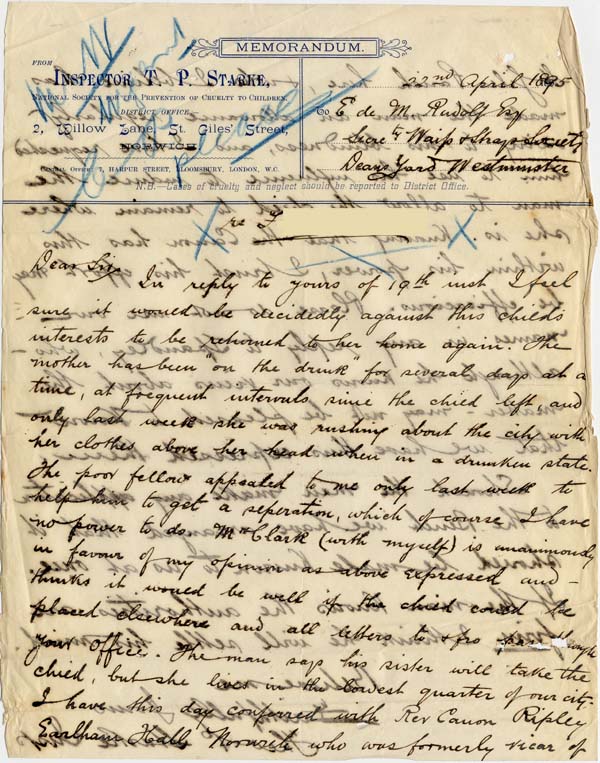 MEMORANDUM.
FROM
INSPECTOR T. P. STARKE,
NATIONAL SOCIETY FOR THE PREVENTION OF CRUELTY TO CHILDREN,
DISTRICT OFFICE—
2, Willow Lane, St. Giles' Street,
NORWICH
CENTRAL OFFICE: 7, HARPUR STREET, BLOOMSBURY, LONDON, W.C.
22nd April 1895
To E de M Rudolf Esq
Secrety Waifs & Strays Society
Deans Yard Westminster
N.B.—Cases of cruelty and neglect should be reported to District Office.
re
Dear Sir, In reply to yours of 19th inst I feel
sure it would be decidedly against this childs
interests to be returned to her home again. The
mother has been "on the drunk" for several days at a
time, at frequent intervals since the child left, and
only last week she was rushing about the city with
her clothes above her head when in a drunken state.
The poor fellow appealed to me only last week to
help him to get a seperation, which of course I have
no power to do. Mr Clark (with myself) is unanimously
in favour of my opinion as above expressed and –
thinks it would be well if the child could be
placed elsewhere and all letters to & fro through
your office. The man says his sister will take the
child, but she lives in the lowest quarter of our city.
I have this day conferred with Rev Canon Ripley
Earlham Hall, Norwich who was formerly vicar of